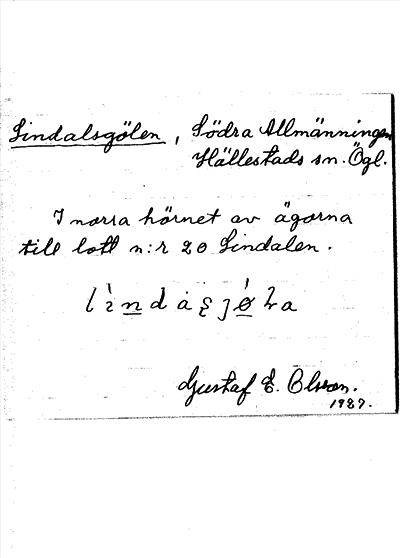 Lindalsgölen, Södra Allmänningen
Hällestads sn. Ögl.
I norra hörnet av ägorna
till lott n:r 20 Lindalen.
Gustaf E. Olsson.